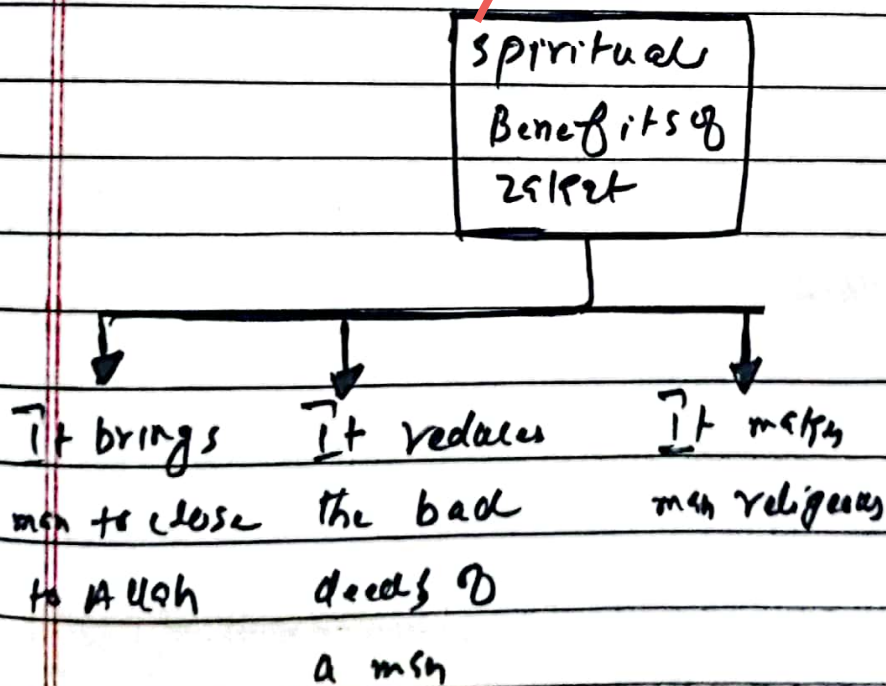 Spiritual
Benefits of
Zakat
It brings
man to close
to Allah
It reduces
the bad
deeds of
a man
It makes
man religeous